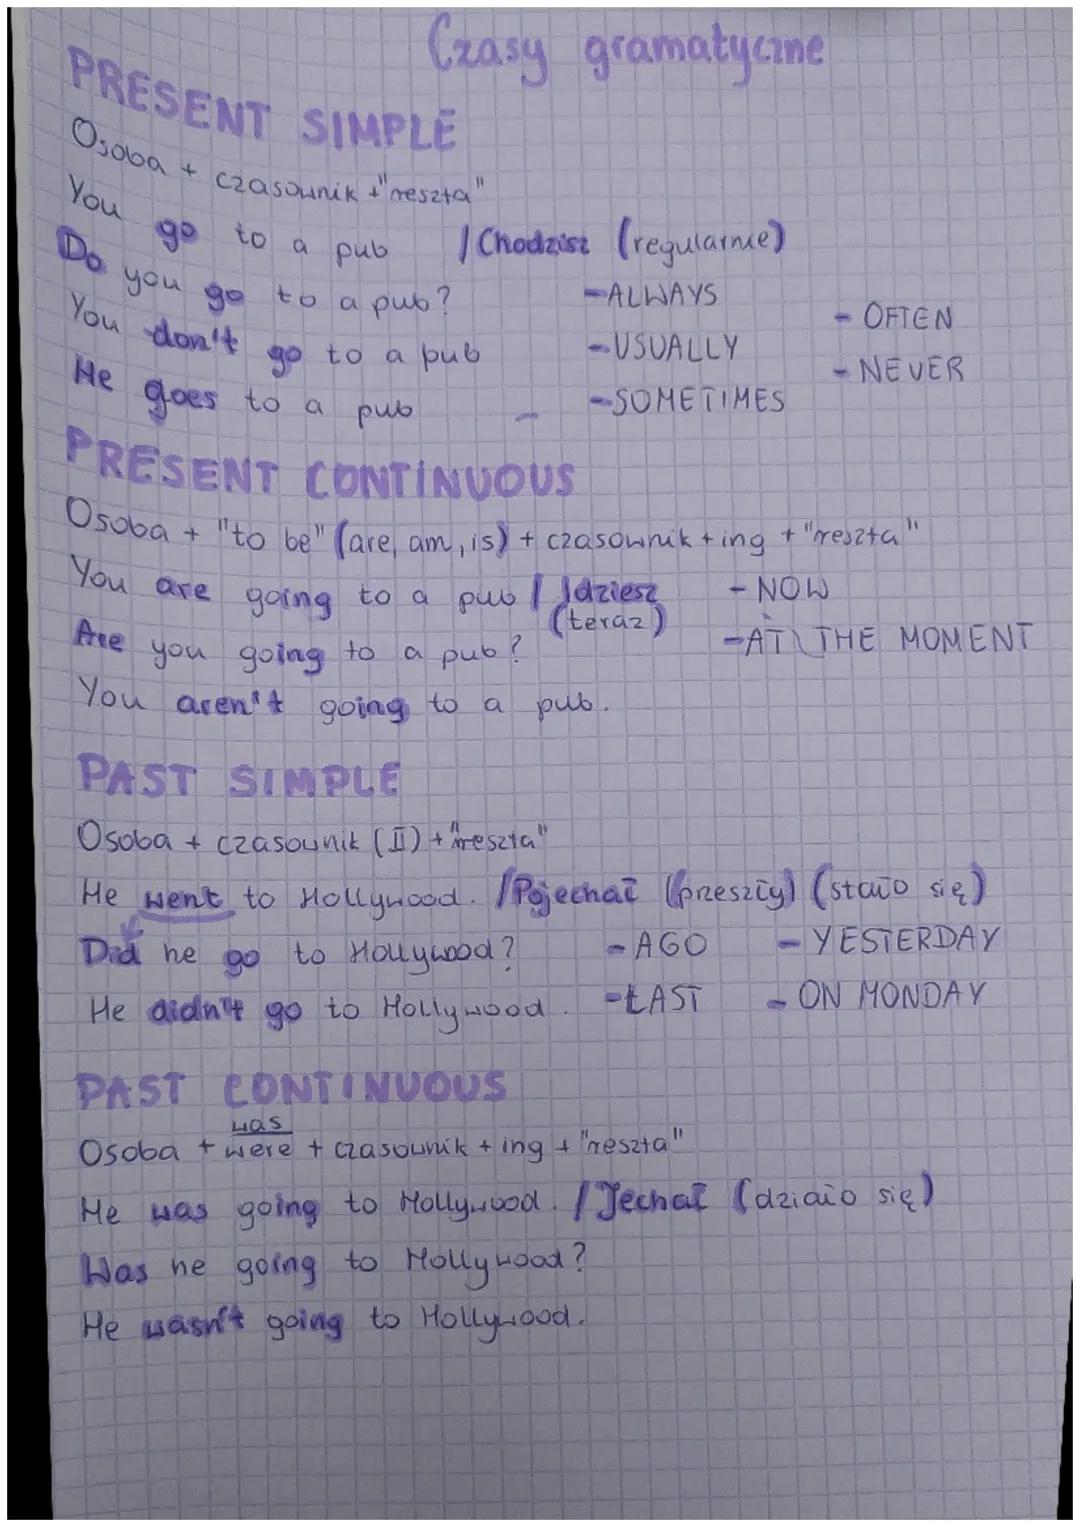 Czasy gramatyczne
PRESENT SIMPLE
Osoba + czasownik + "reszta"
You go to a pub / Chodzisz (regularnie)
Do you go to a pub? - ALWAYS - OFTEN
You don't go to a pub - USUALLY - NEVER
He goes to a pub - SOMETIMES
PRESENT CONTINUOUS
Osoba + "to be" (are, am, is) + czasownik + ing + "reszta"
You are going to a pub / Idziesz (teraz) - NOW
Are you going to a pub? - AT THE MOMENT
You aren't going to a pub.
PAST SIMPLE
Osoba + czasownik (II) + "reszta"
He went to Hollywood. / Pojechał (przeszły) (stało się)
Did he go to Hollywood? - AGO - YESTERDAY
He didn't go to Hollywood. - LAST - ON MONDAY
PAST CONTINUOUS
was
Osoba + were + czasownik + ing + "reszta"
He was going to Hollywood. / Jechał (działo się)
Was he going to Hollywood?
He wasn't going to Hollywood.